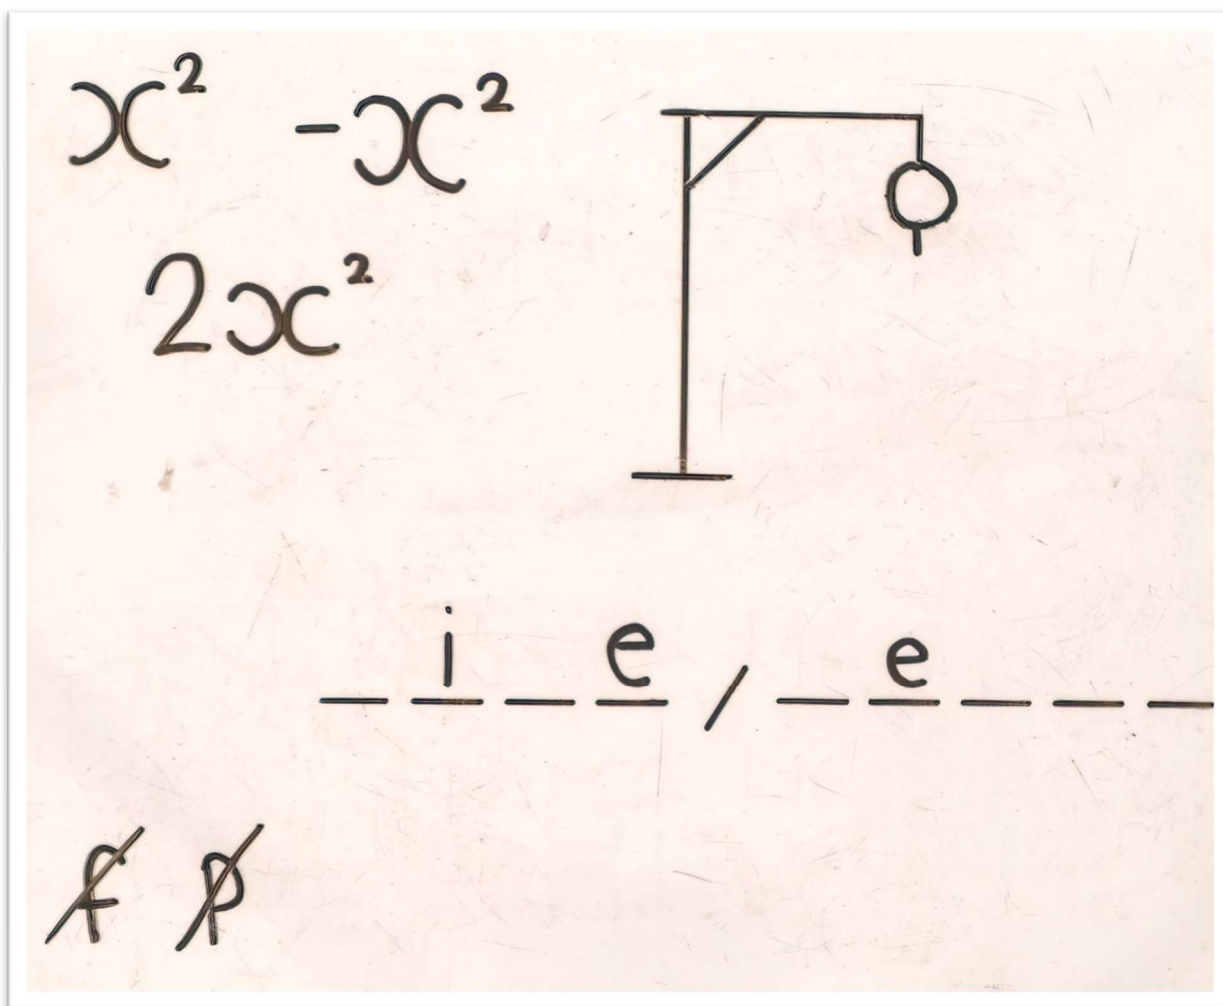 x² -x²
2x²
_ i _ e / _ e _ _ _
f p